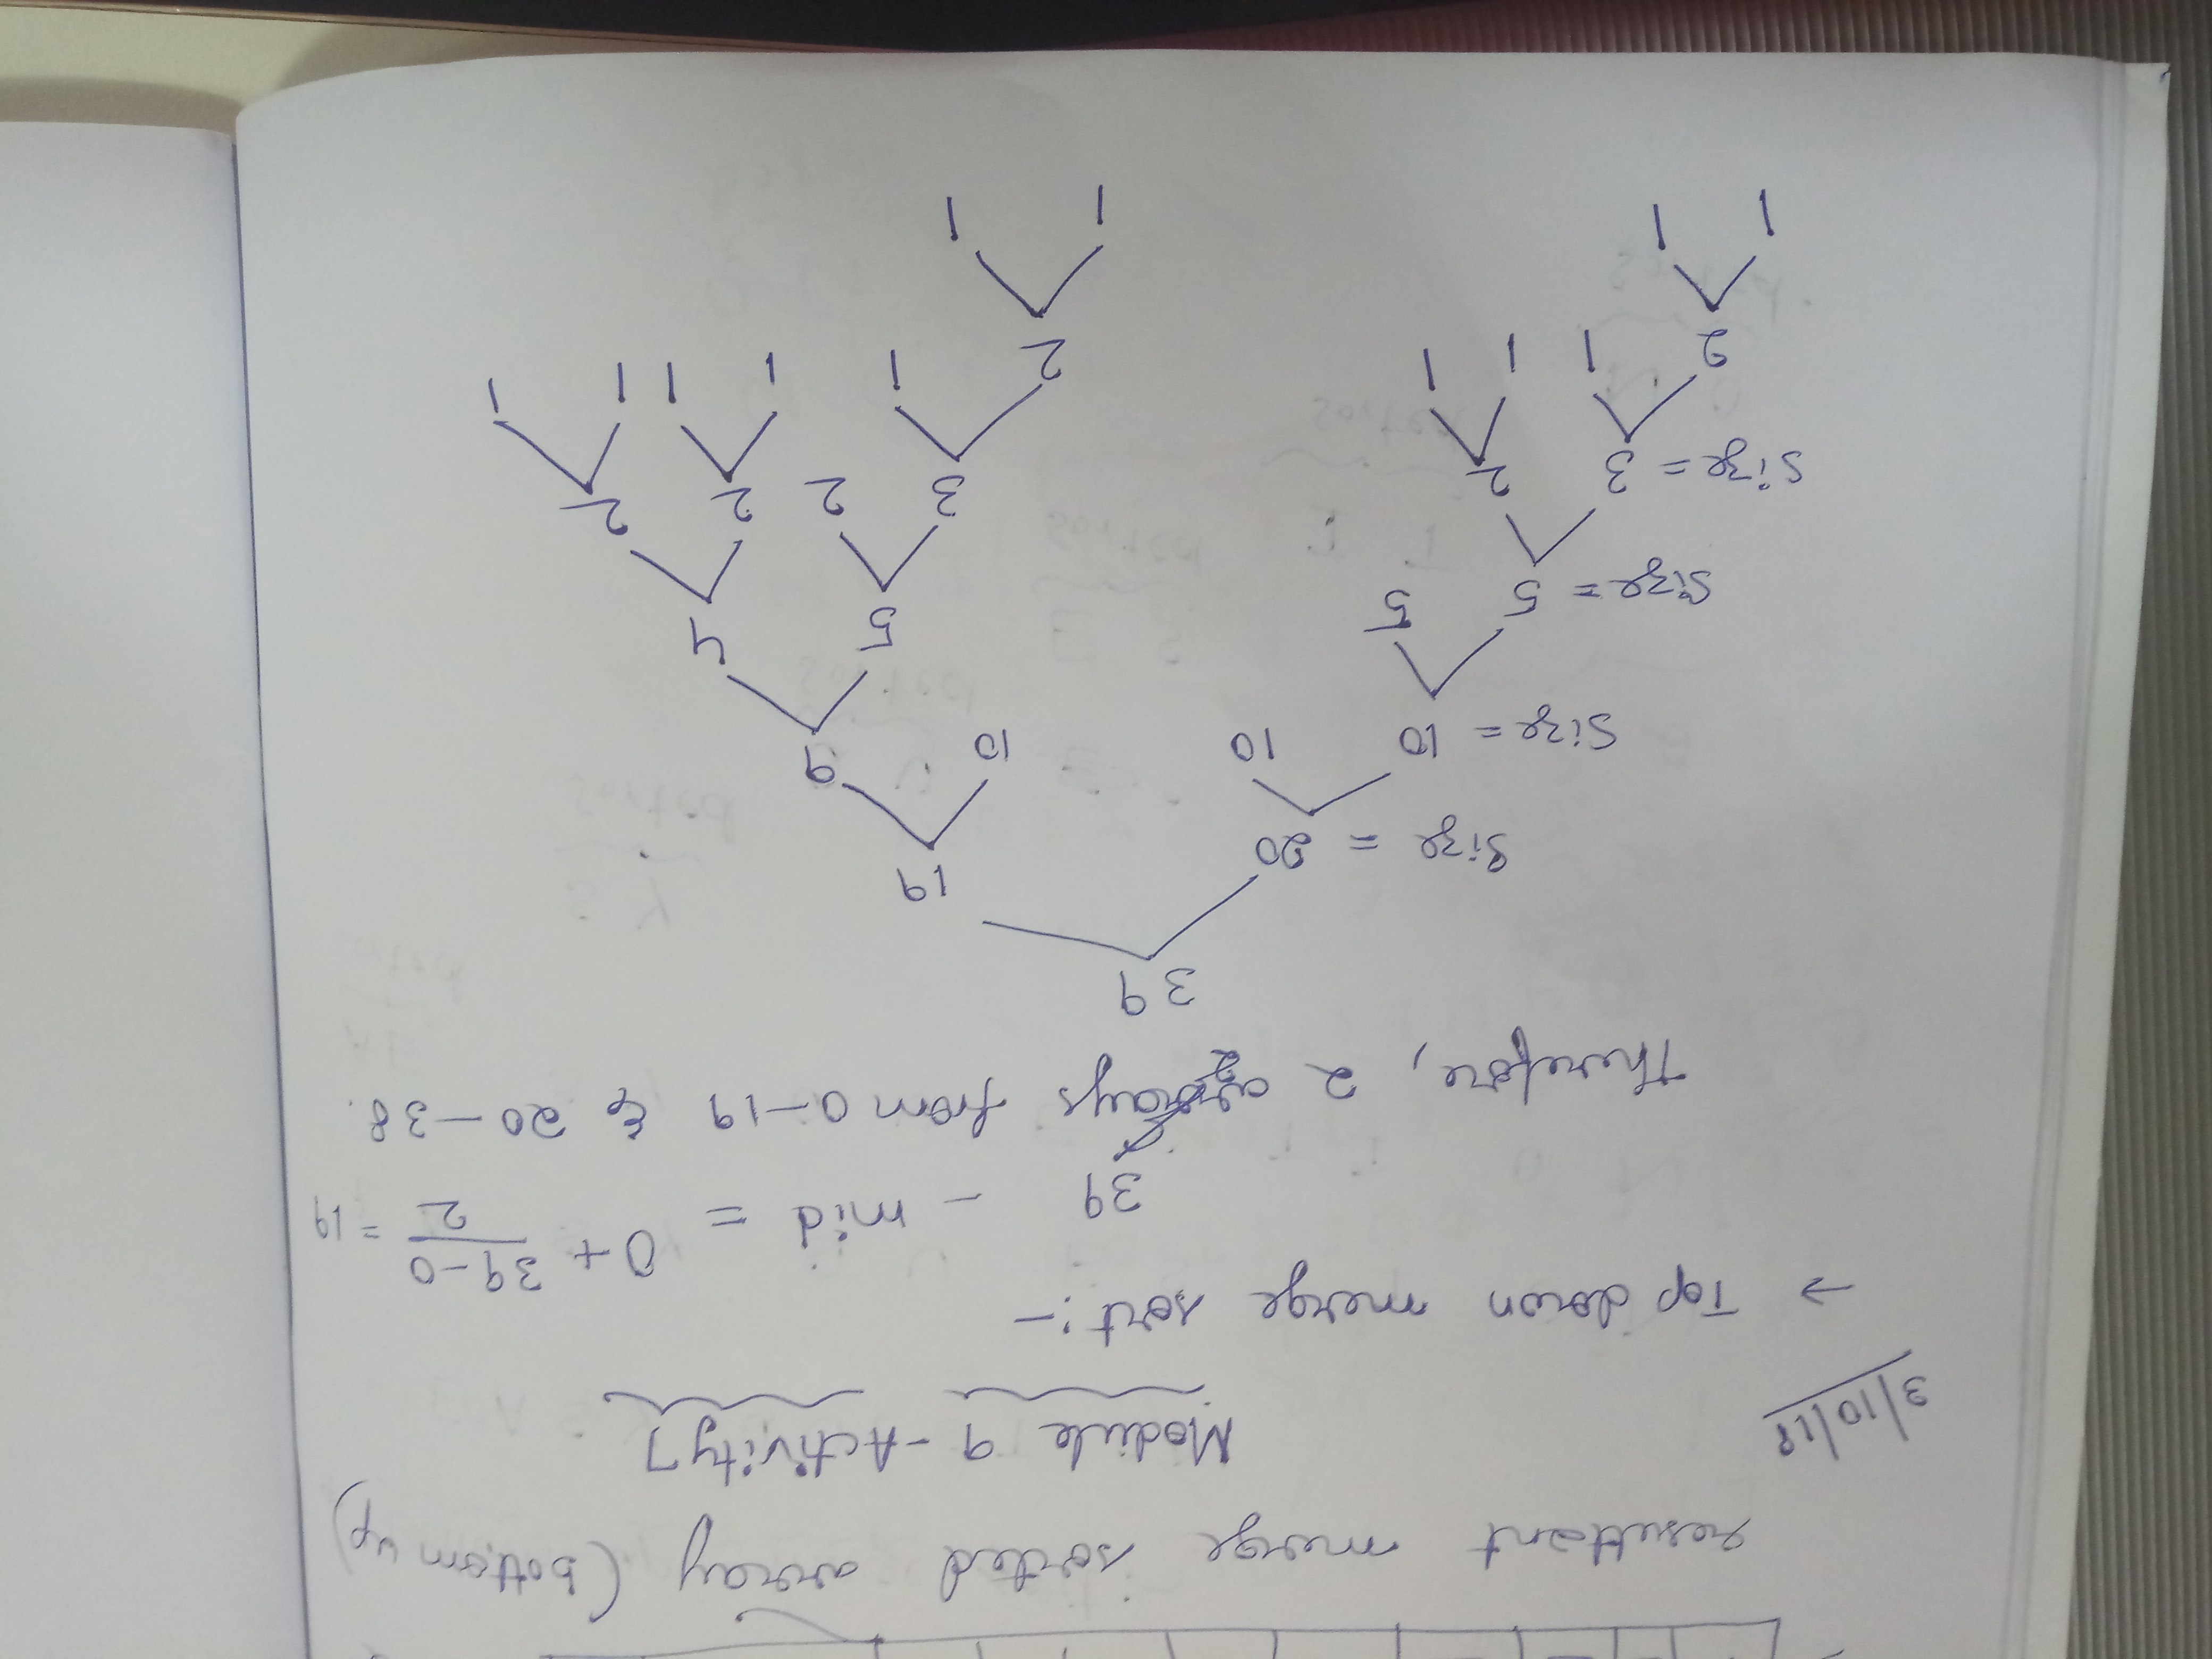 resultant merge sorted array (bottom up)
3/10/18
Module 9 - Activity 7
→ Top down merge sort :-
39 - mid = 0 + 39-0 / 2 = 19
Therefore, 2 arrays from 0-19 & 20-38.
39
Size = 20 19
Size = 10 10 10 9
Size = 5 5 5 4
Size = 3 2 3 2 2 2
2 1 1 1 2 1 1 1 1 1
1 1 1 1